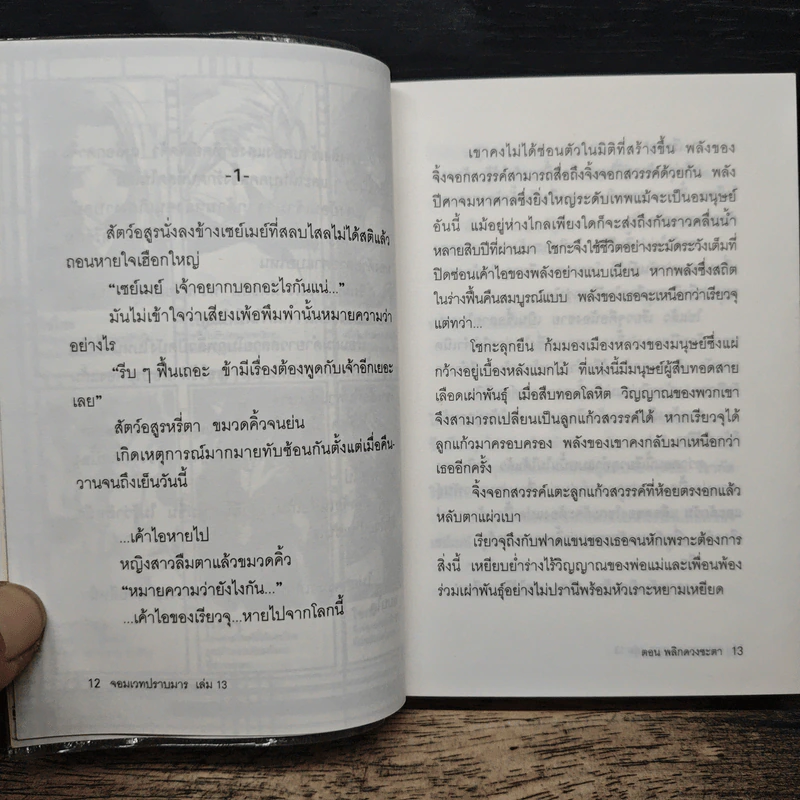 -1-
สัตว์อสูรนั่งลงข้างเซย์เมย์ที่สลบไสลไม่ได้สติแล้ว
ถอนหายใจเฮือกใหญ่
“เซย์เมย์ เจ้าอยากบอกอะไรกันแน่...”
มันไม่เข้าใจว่าเสียงเพ้อพึมพำนั้นหมายความว่า
อย่างไร
“รีบ ๆ ฟื้นเถอะ ข้ามีเรื่องต้องพูดกับเจ้าอีกเยอะ
เลย”
สัตว์อสูรหรี่ตา ขมวดคิ้วจนย่น
เกิดเหตุการณ์มากมายทับซ้อนกันตั้งแต่เมื่อคืน-
วานจนถึงเย็นวันนี้
...เค้าไอหายไป
หญิงสาวลืมตาแล้วขมวดคิ้ว
“หมายความว่ายังไงกัน...”
...เค้าไอของเรียวจุ...หายไปจากโลกนี้
12 จอมเวทปราบมาร เล่ม 13
เขาคงไม่ได้ซ่อนตัวในมิติที่สร้างขึ้น พลังของ
จิ้งจอกสวรรค์สามารถสื่อถึงจิ้งจอกสวรรค์ด้วยกัน พลัง
ปีศาจมหาศาลซึ่งยิ่งใหญ่ระดับเทพแม้จะเป็นอมนุษย์
อันนี้ แม้อยู่ห่างไกลเพียงใดก็จะส่งถึงกันราวคลื่นน้ำ
หลายสิบปีที่ผ่านมา โชกะจึงใช้ชีวิตอย่างระมัดระวังเต็มที่
ปิดซ่อนเค้าไอของพลังอย่างแนบเนียน หากพลังซึ่งสถิต
ในร่างฟื้นคืนสมบูรณ์แบบ พลังของเธอจะเหนือกว่าเรียวจุ
แต่ทว่า...
โชกะลุกยืน ก้มมองเมืองหลวงของมนุษย์ซึ่งแผ่
กว้างอยู่เบื้องหลังแมกไม้ ที่แห่งนี้มีมนุษย์ผู้สืบทอดสาย
เลือดเผ่าพันธุ์ เมื่อสืบทอดโลหิต วิญญาณของพวกเขา
จึงสามารถเปลี่ยนเป็นลูกแก้วสวรรค์ได้ หากเรียวจุได้
ลูกแก้วมาครอบครอง พลังของเขาคงกลับมาเหนือกว่า
เธออีกครั้ง
จิ้งจอกสวรรค์แตะลูกแก้วสวรรค์ที่ห้อยตรงอกแล้ว
หลับตาแผ่วเบา
เรียวจุถึงกับฟาดแขนของเธอจนหักเพราะต้องการ
สิ่งนี้ เหยียบย่ำร่างไร้วิญญาณของพ่อแม่และเพื่อนพ้อง
ร่วมเผ่าพันธุ์อย่างไม่ปรานีพร้อมหัวเราะหยามเหยียด
ตอน พลิกดวงชะตา 13